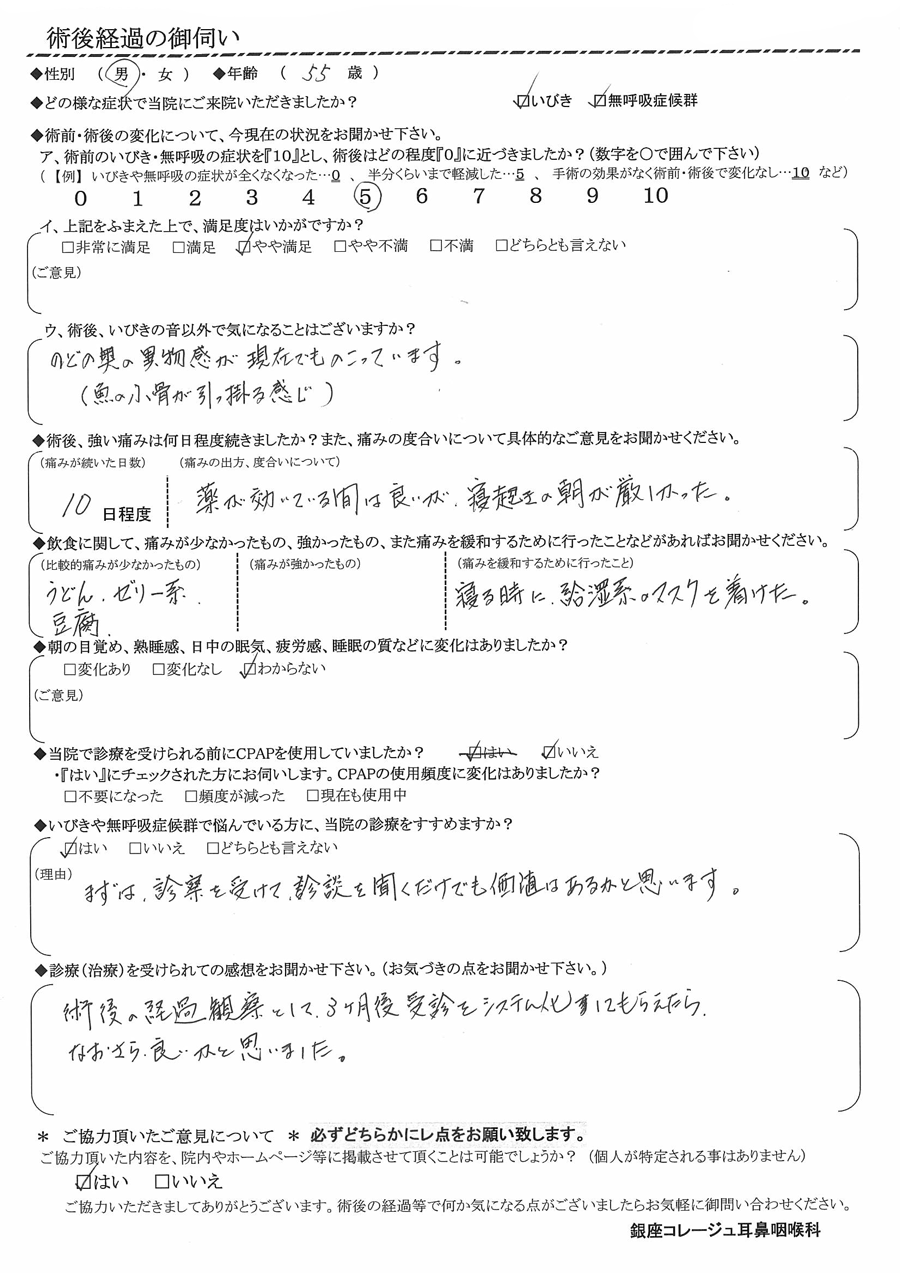 術後経過の御伺い
◆性別 （ 男 ・ 女 ） ◆年齢 （ 55 歳 ）
◆どの様な症状で当院にご来院いただきましたか？ ☑いびき ☑無呼吸症候群
◆術前・術後の変化について、今現在の状況をお聞かせ下さい。
ア、術前のいびき・無呼吸の症状を『10』とし、術後はどの程度『0』に近づきましたか？（数字を○で囲んで下さい）
（【例】 いびきや無呼吸の症状が全くなくなった…0 、 半分くらいまで軽減した…5 、 手術の効果がなく術前・術後で変化なし…10 など）
0 1 2 3 4 5 6 7 8 9 10
イ、上記をふまえた上で、満足度はいかがですか？
□非常に満足 □満足 ☑やや満足 □やや不満 □不満 □どちらとも言えない
（ご意見）
ウ、術後、いびきの音以外で気になることはございますか？
のどの奥の異物感が現在でものこっています。
（魚の小骨が引っ掛る感じ）
◆術後、強い痛みは何日程度続きましたか？また、痛みの度合いについて具体的なご意見をお聞かせください。
（痛みが続いた日数） （痛みの出方、度合いについて）
10 日程度 薬が効いている間は良いが、寝起きの朝が厳しかった。
◆飲食に関して、痛みが少なかったもの、強かったもの、また痛みを緩和するために行ったことなどがあればお聞かせください。
（比較的痛みが少なかったもの） （痛みが強かったもの） （痛みを緩和するために行ったこと）
うどん、ゼリー系、 寝る時に、給湿系のマスクを着けた。
豆腐
◆朝の目覚め、熟睡感、日中の眠気、疲労感、睡眠の質などに変化はありましたか？
□変化あり □変化なし ☑わからない
（ご意見）
◆当院で診療を受けられる前にCPAPを使用していましたか？ ☑はい ☑いいえ
・『はい』にチェックされた方にお伺いします。CPAPの使用頻度に変化はありましたか？
□不要になった □頻度が減った □現在も使用中
◆いびきや無呼吸症候群で悩んでいる方に、当院の診療をすすめますか？
☑はい □いいえ □どちらとも言えない
（理由） まずは、診察を受けて、診談を聞くだけでも価値はあるかと思います。
◆診療（治療）を受けられての感想をお聞かせ下さい。（お気づきの点をお聞かせ下さい。）
術後の経過観察として、3ヶ月後受診をシステム化すにてもらえたら、
なおさら、良いかと思いました。
＊ ご協力頂いたご意見について ＊ 必ずどちらかにレ点をお願い致します。
ご協力頂いた内容を、院内やホームページ等に掲載させて頂くことは可能でしょうか？ （個人が特定される事はありません）
☑はい □いいえ
ご協力いただきましてありがとうございます。術後の経過等で何か気になる点がございましたらお気軽に御問い合わせください。
銀座コレージュ耳鼻咽喉科